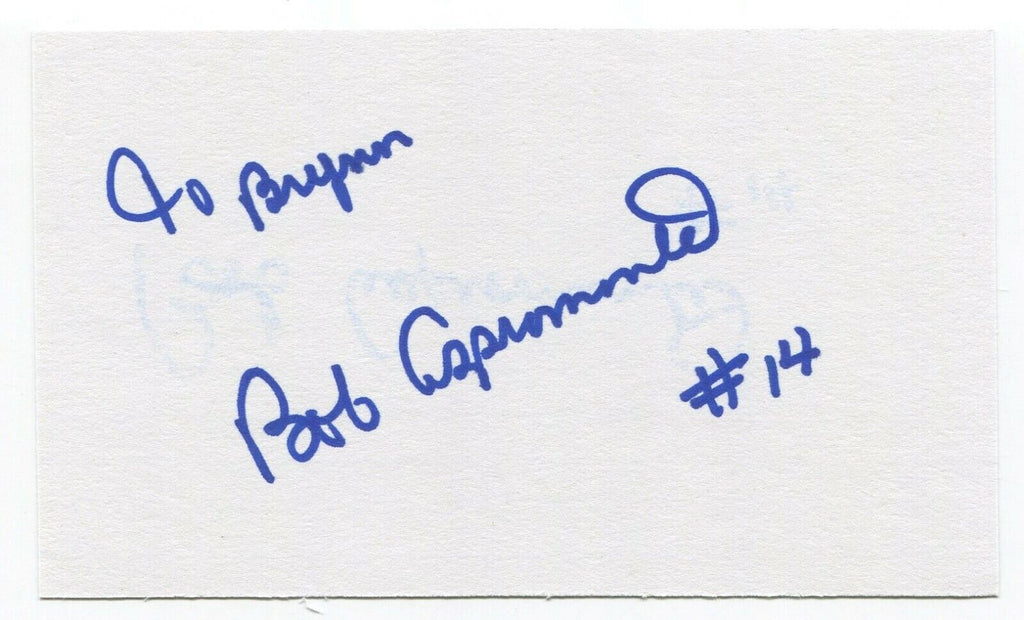 To Brynn
Bob Aspromonte
#14